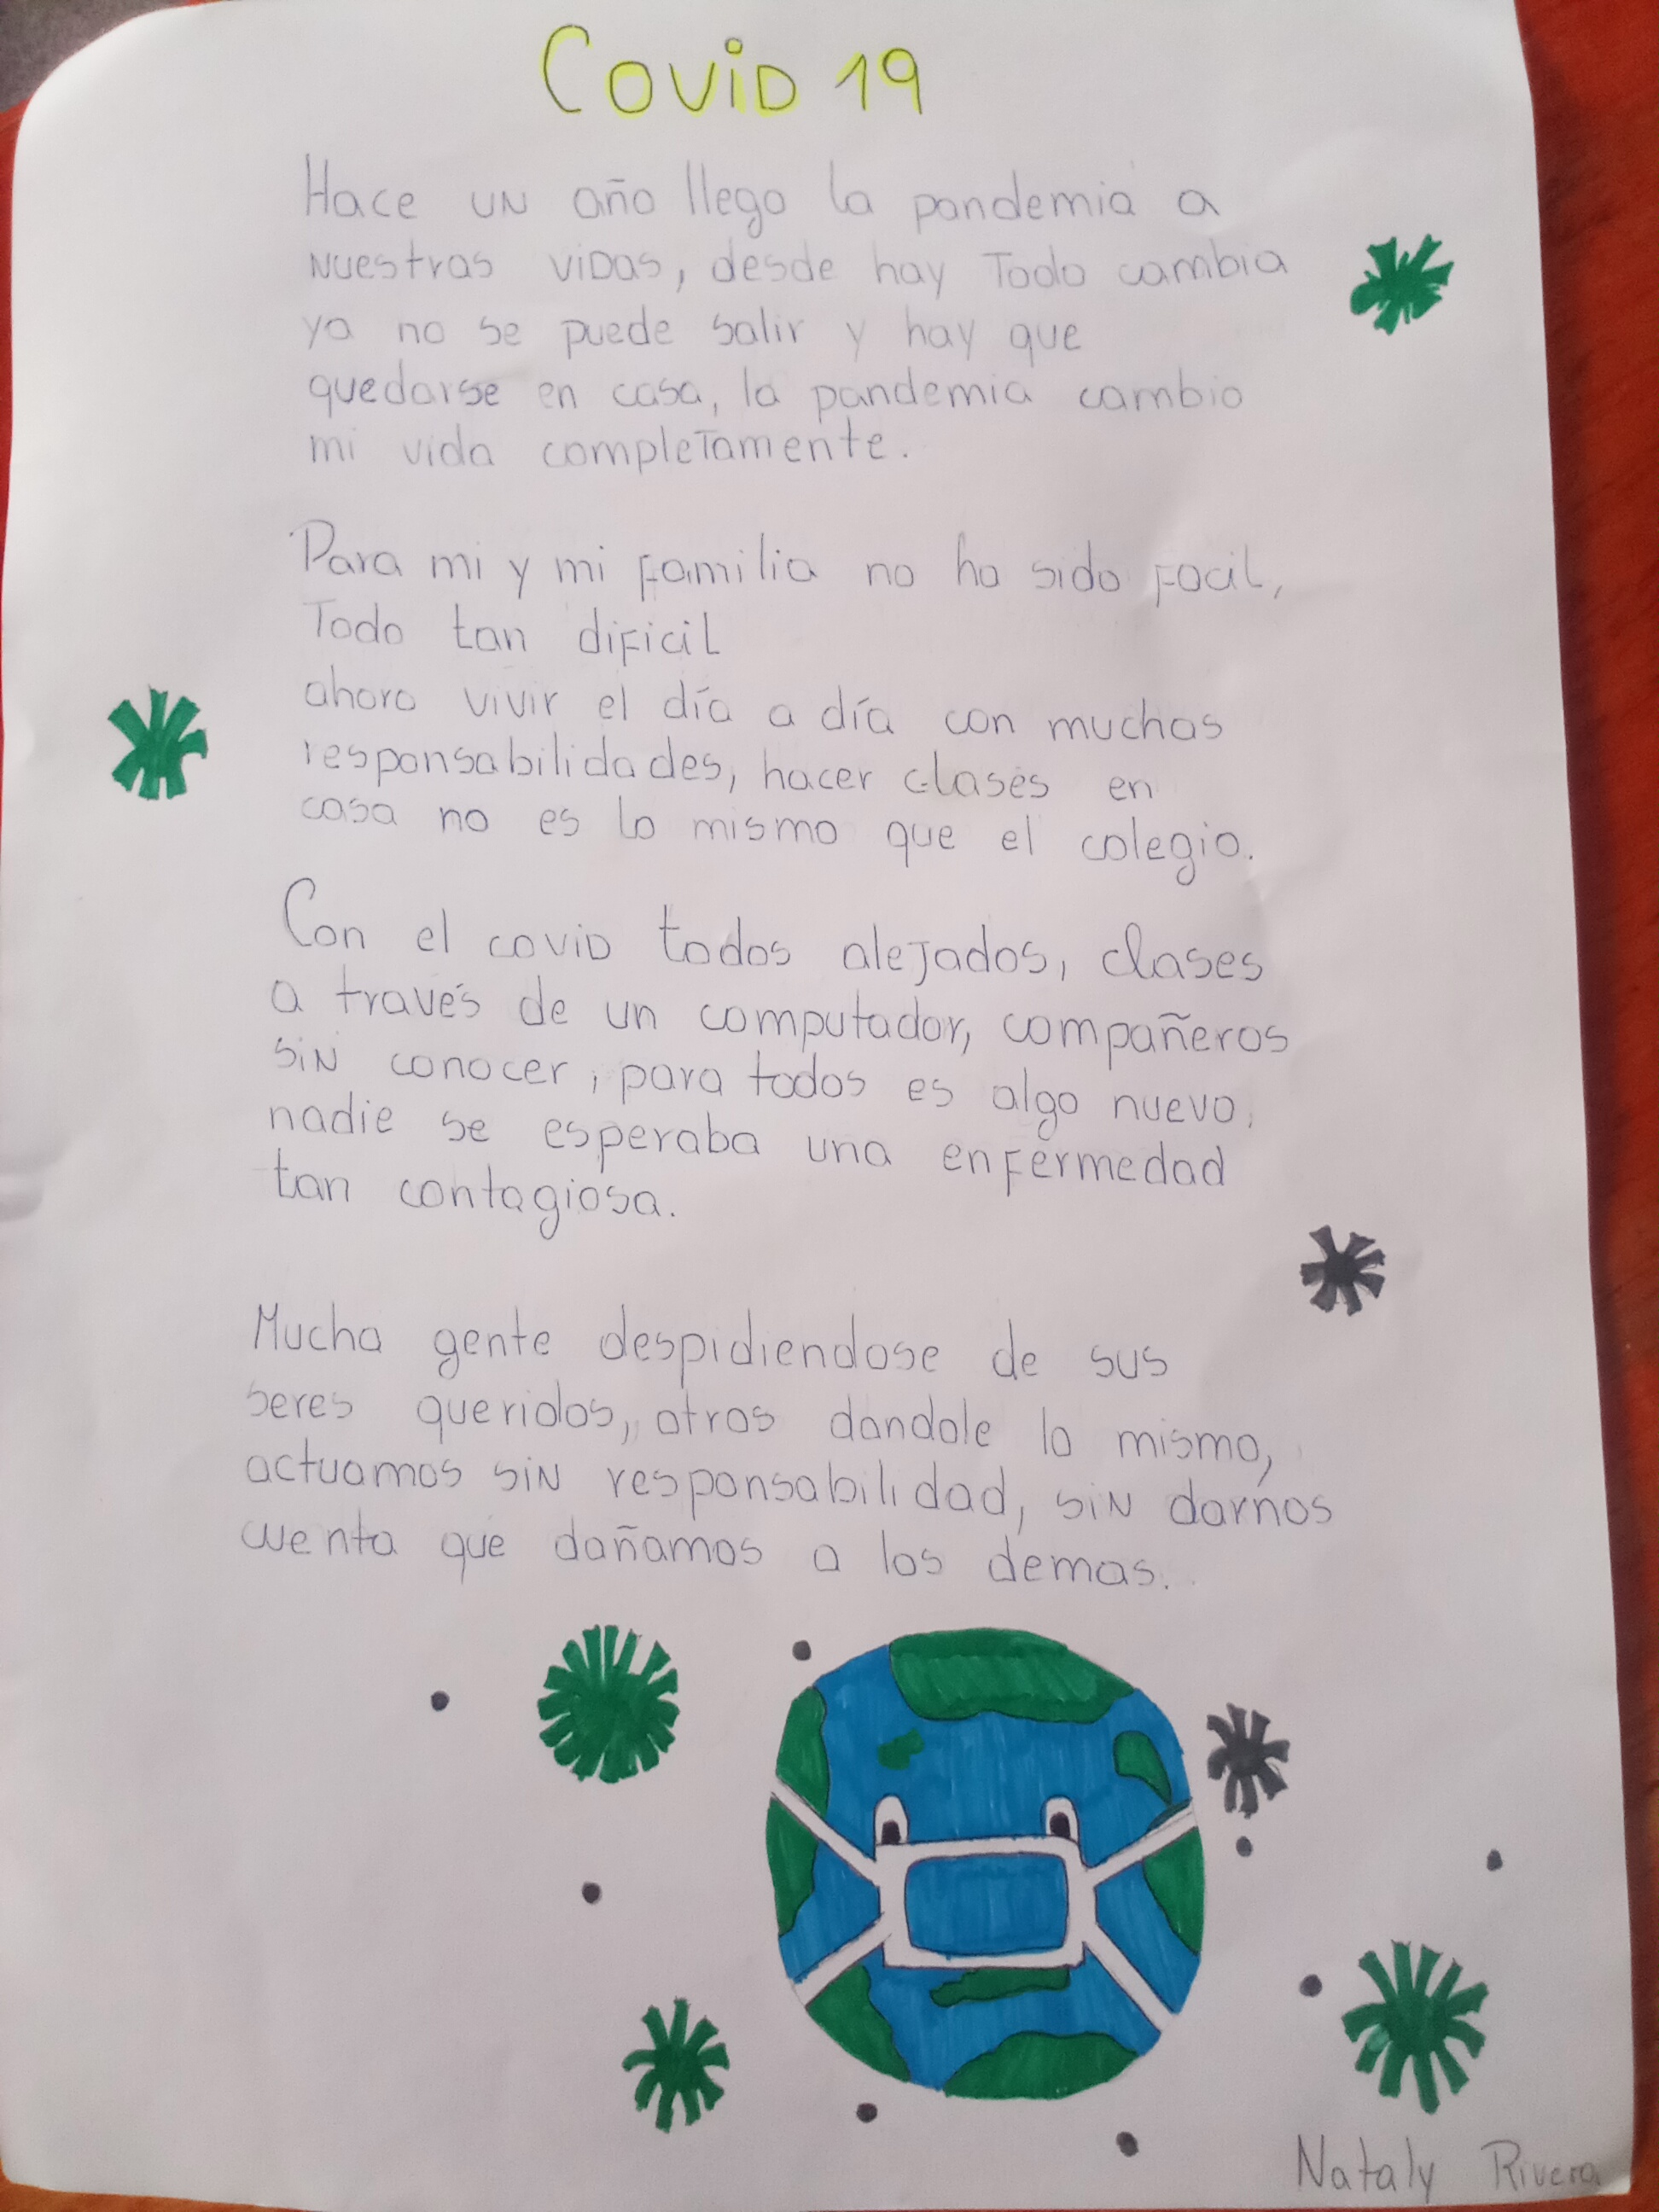 Covid 19
Hace un año llego la pandemia a
nuestras vidas, desde hay Todo cambia
ya no se puede salir y hay que
quedarse en casa, la pandemia cambio
mi vida completamente.
Para mi y mi familia no ha sido facil,
Todo tan dificil
ahora vivir el día a día con muchas
responsabilidades, hacer clases en
casa no es lo mismo que el colegio.
Con el covid todos alejados, clases
a través de un computador, compañeros
sin conocer, para todos es algo nuevo,
nadie se esperaba una enfermedad
tan contagiosa.
Mucha gente despidiendose de sus
seres queridos, otros dandole lo mismo,
actuamos sin responsabilidad, sin darnos
cuenta que dañamos a los demas.
Nataly Rivera